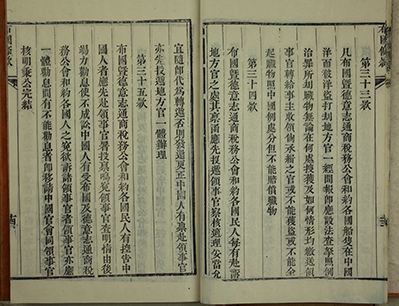 第三十三款
凡布國暨德意志通商稅務公會和約各國船隻在中國
洋面被洋盜打刦地方官一經聞報即應設法查拏照例
治罪所刦贓物無論在何處搜獲及如何情形均繳送領
事官轉給事主收領倘承緝之官或不能獲盜或不能全
起贓物照中國例處分但不能賠償贓物
第三十四款
布國暨德意志通商稅務公會和約各國民人每有赴訴
地方官之處其稟函應先投遞領事官察核適理妥當允
宜隨即代爲轉遞否則發還更正中國人有稟赴領事官
亦先投遞地方官一體辦理
第三十五款
布國暨德意志通商稅務公會和約各國民人有控告中
國人者應先赴領事官署投稟嗚冤領事官查明情由後
竭力勸息使不成訟中國人有受布國及德意志通商稅
務公會和約各國人之冤欲訴諸領事官者領事官亦應
一體勸息間有不能勸息者即移請中國官會同領事官
核明秉公完結